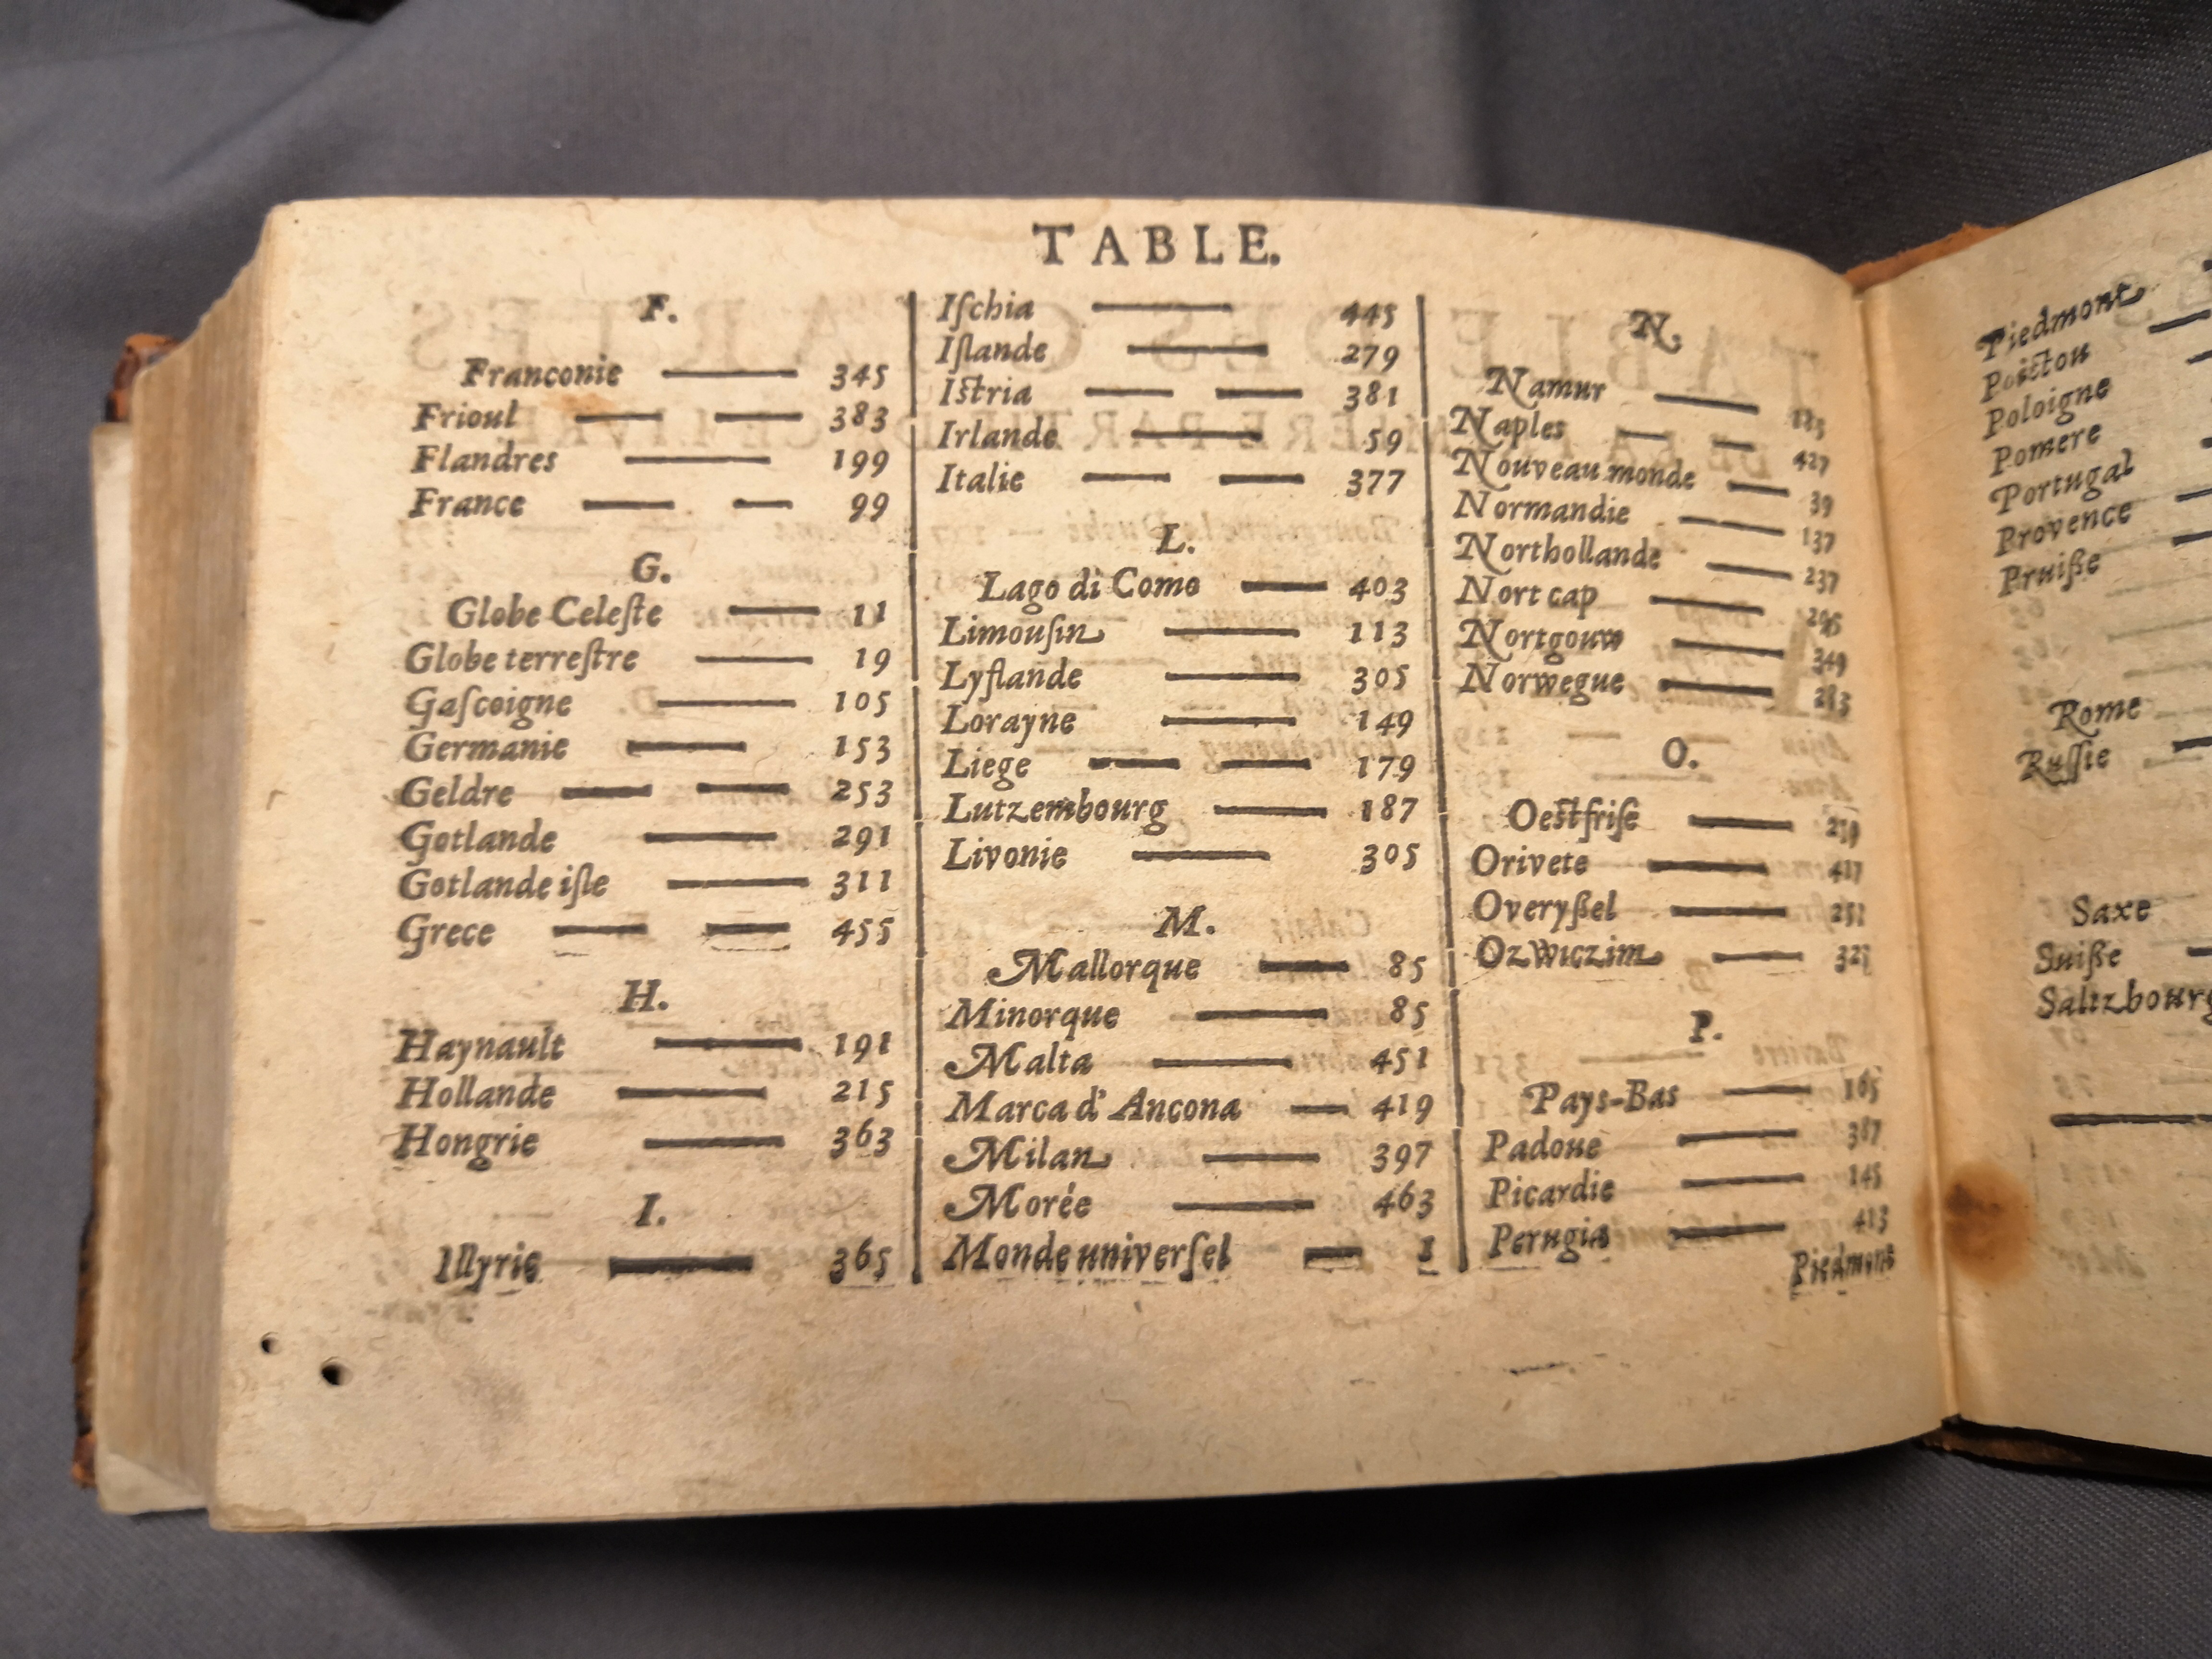 TABLE.
F.
Franconie 345
Frioul 383
Flandres 199
France 99
G.
Globe Celeſte 11
Globe terreſtre 19
Gaſcoigne 105
Germanie 153
Geldre 253
Gotlande 291
Gotlande iſle 311
Grece 455
H.
Haynault 191
Hollande 215
Hongrie 363
I.
Illyrie 365
Iſchia 445
Iſlande 279
Iſtria 381
Irlande 59
Italie 377
L.
Lago di Como 403
Limouſin 113
Lyflande 305
Lorayne 149
Liege 179
Lutzembourg 187
Livonie 305
M.
Mallorque 85
Minorque 85
Malta 451
Marca d'Ancona 419
Milan 397
Morée 463
Monde univerſel 1
N.
Namur
Naples 427
Nouveau monde 39
Normandie 137
Northollande 237
Nort cap
Nortgouw 349
Norwegue 283
O.
Oeſtfriſe
Orivete 417
Overyßel
OzWiczim
P.
Pays-Bas 165
Padoue 387
Picardie 145
Perugia 413
Piedmont
Piedmont
Poictou
Poloigne
Pomere
Portugal
Provence
Pruiße
Rome
Ruſſie
Saxe
Suiße
Saltzbourg